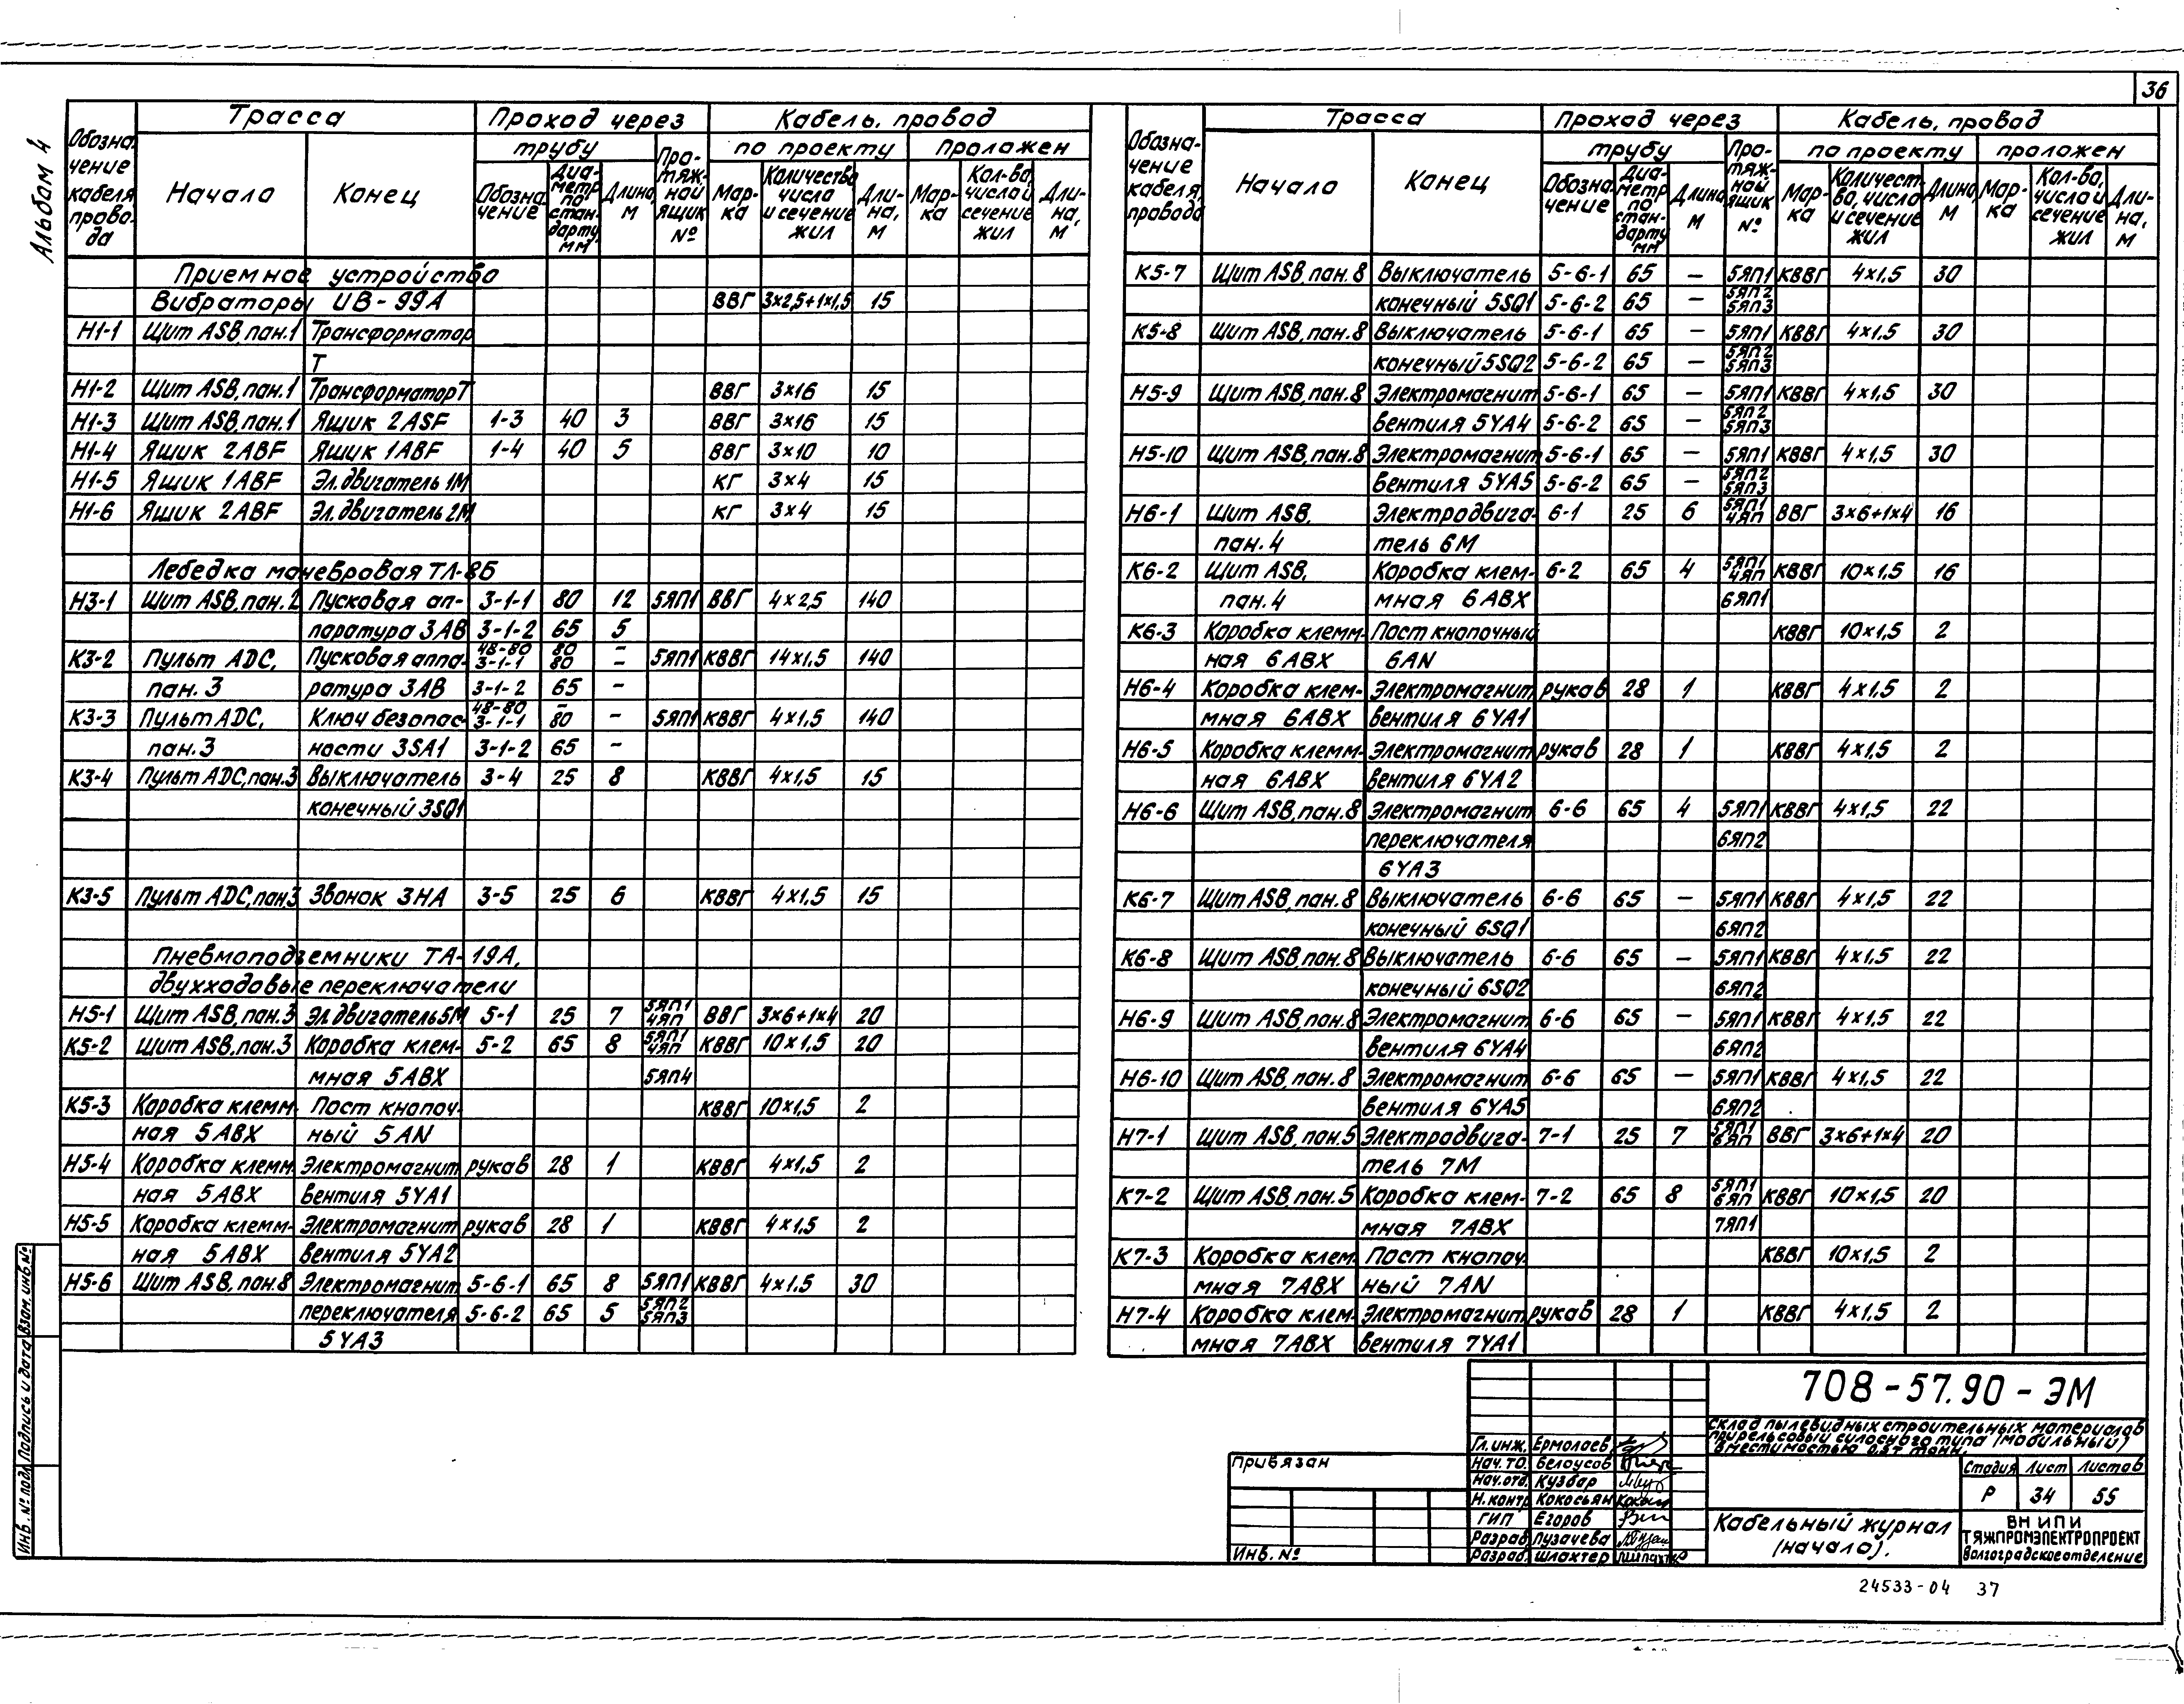 36
Альбом 4
Обозна-чение кабеля, провода | Трасса | Проход через | Кабель, провод
трубу | Протяжной ящик № | по проекту | проложен
Начало | Конец | Обозначение | Диаметр по стандарту, мм | Длина, м | Марка | Количество, число и сечение жил | Длина, м | Марка | Кол-во, число и сечение жил | Длина, м
Приемное устройство
Вибраторы ИВ-99А ВВГ 3×2,5+1×1,5 15
Н1-1 Щит ASB, пан.1 Трансформатор
Т
Н1-2 Щит ASB, пан.1 Трансформатор Т ВВГ 3×16 15
Н1-3 Щит ASB, пан.1 Ящик 2ASF 1-3 40 3 ВВГ 3×16 15
Н1-4 Ящик 2ABF Ящик 1ABF 1-4 40 5 ВВГ 3×10 10
Н1-5 Ящик 1ABF Эл.двигатель 1М КГ 3×4 15
Н1-6 Ящик 2ABF Эл.двигатель 2М КГ 3×4 15
Лебедка маневровая ТЛ-8Б
Н3-1 Щит ASB, пан.2 Пусковая ап- 3-1-1 80 12 5ЯП1 ВВГ 4×2,5 140
паратура 3АВ 3-1-2 65 5
К3-2 Пульт ADC, Пусковая аппа- 48-80 3-1-1 80 80 – – 5ЯП1 КВВГ 14×1,5 140
пан. 3 ратура 3АВ 3-1-2 65 –
К3-3 Пульт ADC, Ключ безопас- 48-80 3-1-1 – 80 – 5ЯП1 КВВГ 4×1,5 140
пан.3 ности 3SA1 3-1-2 65 –
К3-4 Пульт ADC, пан.3 Выключатель 3-4 25 8 КВВГ 4×1,5 15
конечный 3SQ1
К3-5 Пульт ADC, пан.3 Звонок 3НА 3-5 25 6 КВВГ 4×1,5 15
Пневмоподземники ТА-19А,
двухходовые переключатели
Н5-1 Щит ASB, пан.3 Эл.двигатель 5М 5-1 25 7 5ЯП1 4ЯП ВВГ 3×6+1×4 20
К5-2 Щит ASB, пан.3 Коробка клем- 5-2 65 8 5ЯП1 4ЯП КВВГ 10×1,5 20
мная 5АВХ 5ЯП4
К5-3 Коробка клемм- Пост кнопоч- КВВГ 10×1,5 2
ная 5АВХ ный 5AN
Н5-4 Коробка клемм- Электромагнит рукав 28 1 КВВГ 4×1,5 2
ная 5АВХ вентиля 5YA1
Н5-5 Коробка клемм- Электромагнит рукав 28 1 КВВГ 4×1,5 2
ная 5АВХ вентиля 5YA2
Н5-6 Щит ASB, пан.8 Электромагнит 5-6-1 65 8 5ЯП1 КВВГ 4×1.5 30
переключателя 5-6-2 65 5 5ЯП2 5ЯП3
5YA3
Обозна-чение кабеля, провода | Трасса | Проход через | Кабель, провод
трубу | Протяжной ящик № | по проекту | проложен
Начало | Конец | Обозначение | Диаметр по стандарту, мм | Длина, м | Марка | Количество, число и сечение жил | Длина, м | Марка | Кол-во, число и сечение жил | Длина, м
К5-7 Щит ASB, пан. 8 Выключатель 5-6-1 65 – 5ЯП1 КВВГ 4×1,5 30
конечный 5SQ1 5-6-2 65 – 5ЯП2 5ЯП3
К5-8 Щит ASB, пан. 8 Выключатель 5-6-1 65 – 5ЯП1 КВВГ 4×1,5 30
конечный 5SQ2 5-6-2 65 – 5ЯП2 5ЯП3
Н5-9 Щит ASB, пан.8 Электромагнит 5-6-1 65 – 5ЯП1 КВВГ 4×1,5 30
вентиля 5YA4 5-6-2 65 – 5ЯП2 5ЯП3
Н5-10 Щит ASB, пан.8 Электромагнит 5-6-1 65 – 5ЯП1 КВВГ 4×1,5 30
вентиля 5YA5 5-6-2 65 – 5ЯП2 5ЯП3
Н6-1 Щит ASB, Электродвига- 6-1 25 6 5ЯП1 4ЯП ВВГ 3×6+1×4 16
пан. 4 тель 6М
К6-2 Щит ASB, Коробка клем- 6-2 65 4 5ЯП1 4ЯП КВВГ 10×1,5 16
пан. 4 мная 6АВХ 6ЯП1
К6-3 Коробка клемм- Пост кнопочный КВВГ 10×1,5 2
ная 6АВХ 6AN
Н6-4 Коробка клем- Электромагнит рукав 28 1 КВВГ 4×1,5 2
мная 6АВХ вентиля 6YA1
Н6-5 Коробка клемм- Электромагнит рукав 28 1 КВВГ 4×1,5 2
ная 6АВХ вентиля 6YA2
Н6-6 Щит ASB, пан.8 Электромагнит 6-6 65 4 5ЯП1 КВВГ 4×1,5 22
переключателя 6ЯП2
6YA3
К6-7 Щит ASB, пан. 8 Выключатель 6-6 65 – 5ЯП1 КВВГ 4×1,5 22
конечный 6SQ1 6ЯП2
К6-8 Щит ASB, пан.8 Выключатель 6-6 65 – 5ЯП1 КВВГ 4×1,5 22
конечный 6SQ2 6ЯП2
Н6-9 Щит ASB, пан.8 Электромагнит 6-6 65 – 5ЯП1 КВВГ 4×1,5 22
вентиля 6YA4 6ЯП2
Н6-10 Щит ASB, пан.8 Электромагнит 6-6 65 – 5ЯП1 КВВГ 4×1,5 22
вентиля 6YA5 6ЯП2
Н7-1 Щит ASB, пан.5 Электродвига- 7-1 25 7 5ЯП1 6ЯП ВВГ 3×6+1×4 20
тель 7М
К7-2 Щит ASB, пан. 5 Коробка клем- 7-2 65 8 5ЯП1 6ЯП КВВГ 10×1,5 20
мная 7АВХ 7ЯП1
К7-3 Коробка клем- Пост кнопоч- КВВГ 10×1,5 2
мная 7АВХ ный 7AN
Н7-4 Коробка клем- Электромагнит рукав 28 1 КВВГ 4×1,5 2
мная 7АВХ вентиля 7YA1
Инв. № подл. Подпись и дата Взам. инв. №
Привязан
Инв. №
Гл. инж. Ермолаев
Нач. ТО. Белоусов
Нач. отд. Кузбар
Н. контр Кокосьян
ГИП Егоров
Разраб. Пузачева
Разраб. Шлахтер
708-57.90-ЭМ
Склад пылевидных строительных материалов
прирельсовый силосного типа (мобильный)
вместимостью 0,5т тонн.
Стадия Лист Листов
Р 34 55
Кабельный журнал
(начало).
ВНИПИ
ТЯЖПРОМЭЛЕКТРОПРОЕКТ
Волгоградское отделение
24533-04 37